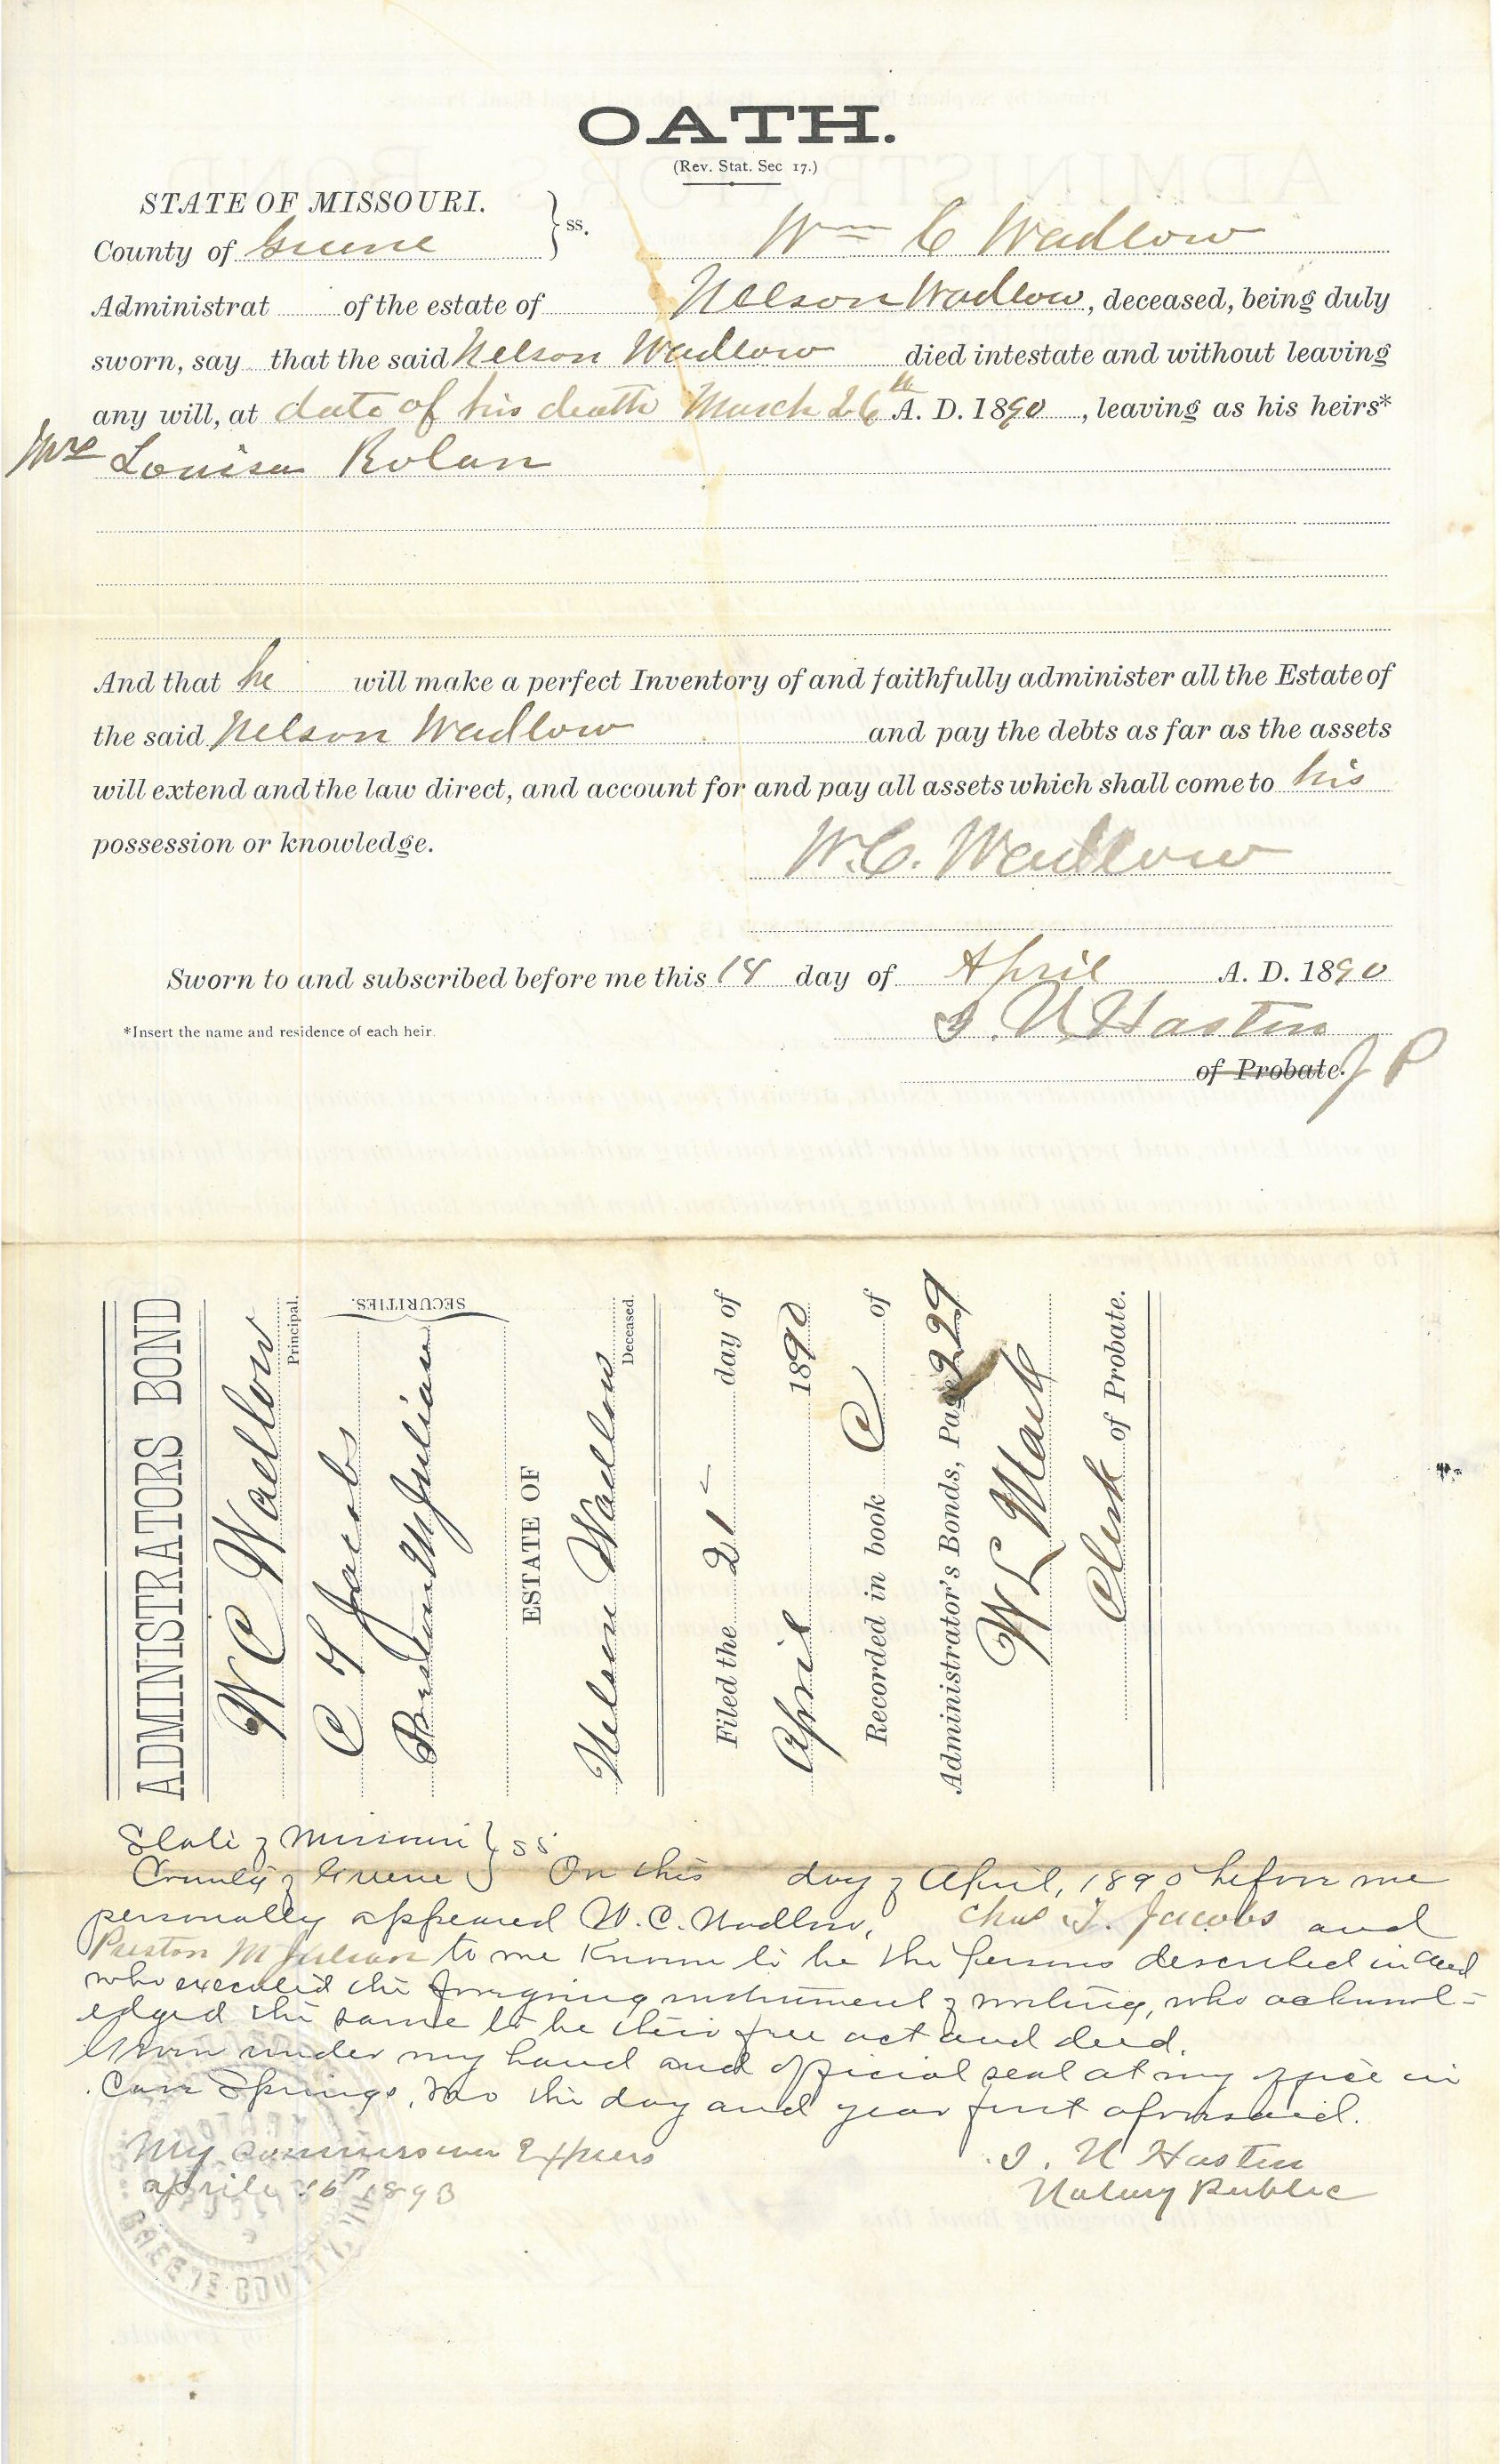 OATH.
(Rev. Stat. Sec 17.)
STATE OF MISSOURI. } ss.
County of Greene
Wm C Wadlow
Administrat of the estate of Nelson Wadlow, deceased, being duly
sworn, say that the said Nelson Wadlow died intestate and without leaving
any will, at date of his death March 26th A. D. 1890, leaving as his heirs*
Mrs Louisa Rolan
And that he will make a perfect Inventory of and faithfully administer all the Estate of
the said Nelson Wadlow and pay the debts as far as the assets
will extend and the law direct, and account for and pay all assets which shall come to his
possession or knowledge.
W.C. Wadlow
Sworn to and subscribed before me this 18 day of April A. D. 1890
*Insert the name and residence of each heir.
I. N. Hastin
of Probate. J P
ADMINISTRATORS BOND
W C Wadlow
Principal.
C T Jacobs
Preston M Julian
SECURITIES.
ESTATE OF
Nelson Wadlow
Deceased.
Filed the 21 day of
April 1890
Recorded in book C of
Administrator's Bonds, Page 229
W L
Clerk of Probate.
State of Missouri } ss
County of Greene } On this day of April, 1890 before me
personally appeared W. C. Wadlow, Chas T. Jacobs and
Preston M Julian to me known to be the persons described in and
who executed the foregoing instrument of writing, who acknowl-
edged the same to be their free act and deed.
Given under my hand and official seal at my office in
Cave Springs, Mo the day and year first aforesaid.
My commission Expires
April 16th 1893
I. N Hastin
Notary Public
GREENE COUNTY,